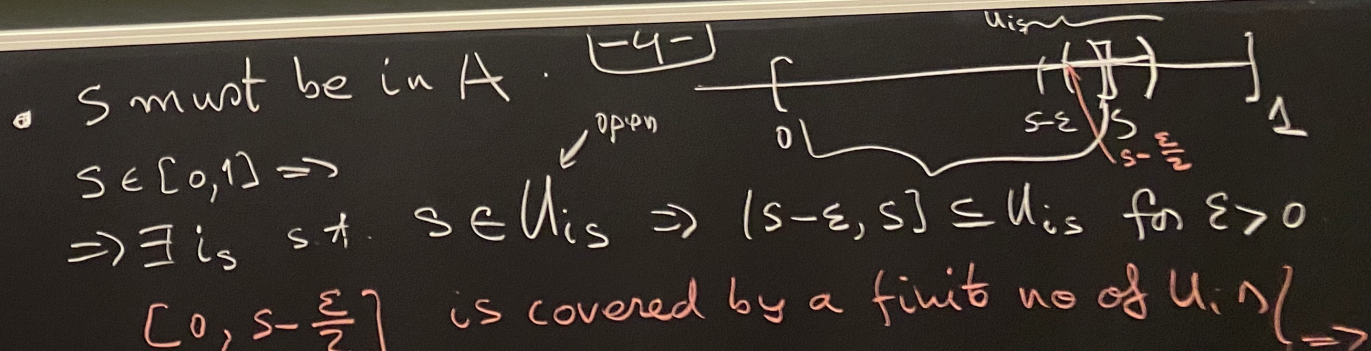 • S must be in A. -4-
U_{i_s}
0 s-ε s 1
s-ε/2
open
s ∈ [0,1] =>
=> ∃ i_s s.t. s ∈ U_{i_s} => (s-ε, s] ⊆ U_{i_s} for ε>0
[0, s-ε/2] is covered by a finit no of U_i s =>